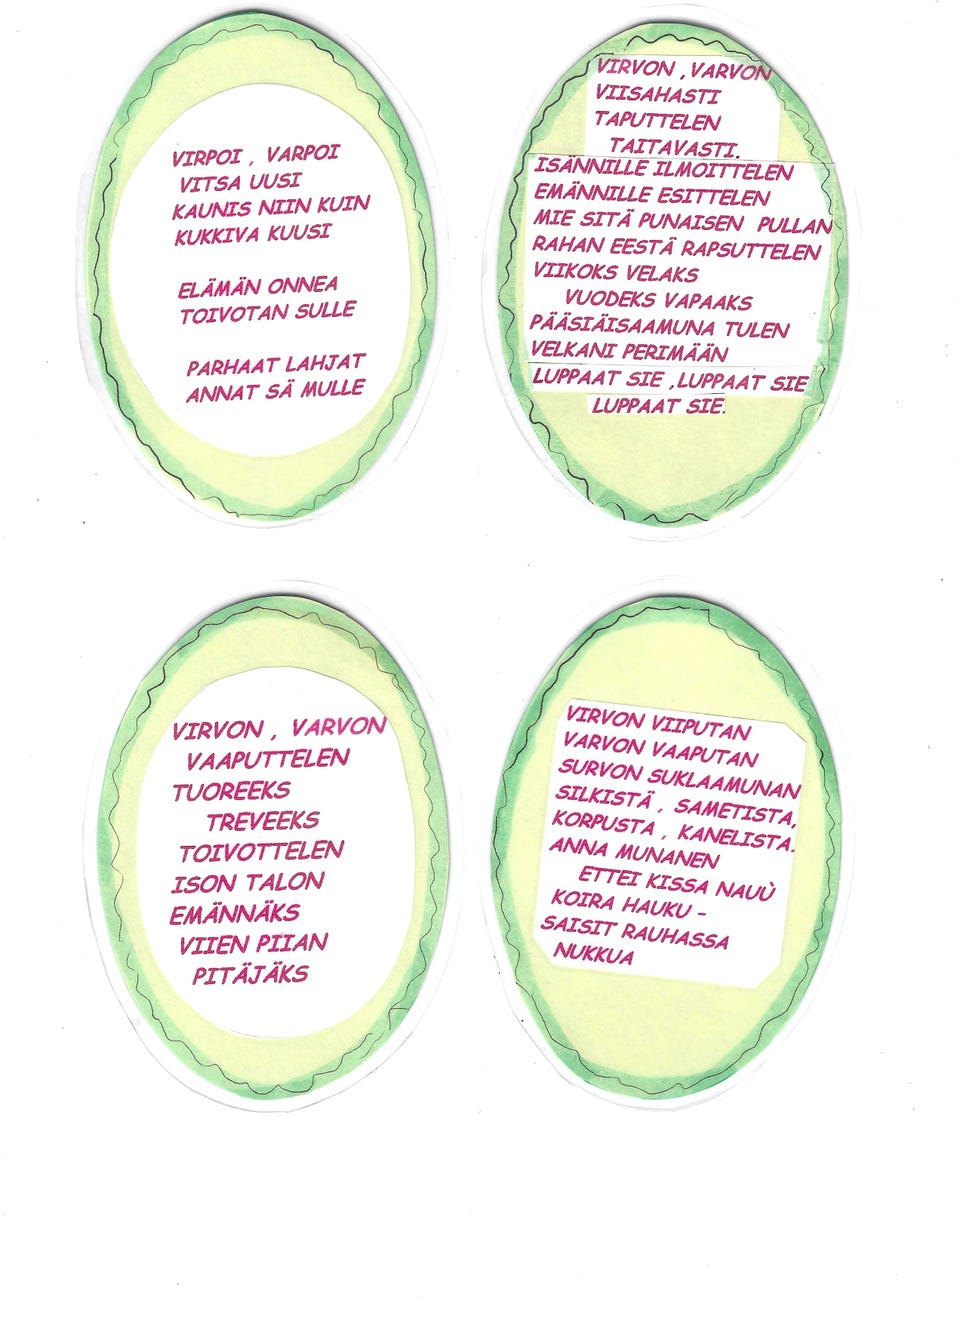 VIRPOI , VARPOI
VITSA UUSI
KAUNIS NIIN KUIN
KUKKIVA KUUSI
ELÄMÄN ONNEA
TOIVOTAN SULLE
PARHAAT LAHJAT
ANNAT SÄ MULLE
VIRVON , VARVON
VIISAHASTI
TAPUTTELEN
TAITAVASTI.
ISÄNNILLE ILMOITTELEN
EMÄNNILLE ESITTELEN
MIE SITÄ PUNAISEN PULLAN
RAHAN EESTÄ RAPSUTTELEN
VIIKOKS VELAKS
VUODEKS VAPAAKS
PÄÄSIÄISAAMUNA TULEN
VELKANI PERIMÄÄN
LUPPAAT SIE , LUPPAAT SIE
LUPPAAT SIE.
VIRVON , VARVON
VAAPUTTELEN
TUOREEKS
TREVEEKS
TOIVOTTELEN
ISON TALON
EMÄNNÄKS
VIIEN PIIAN
PITÄJÄKS
VIRVON VIIPUTAN
VARVON VAAPUTAN
SURVON SUKLAAMUNAN
SILKISTÄ , SAMETISTA,
KORPUSTA , KANELISTA.
ANNA MUNANEN
ETTEI KISSA NAUÙ
KOIRA HAUKU –
SAISIT RAUHASSA
NUKKUA